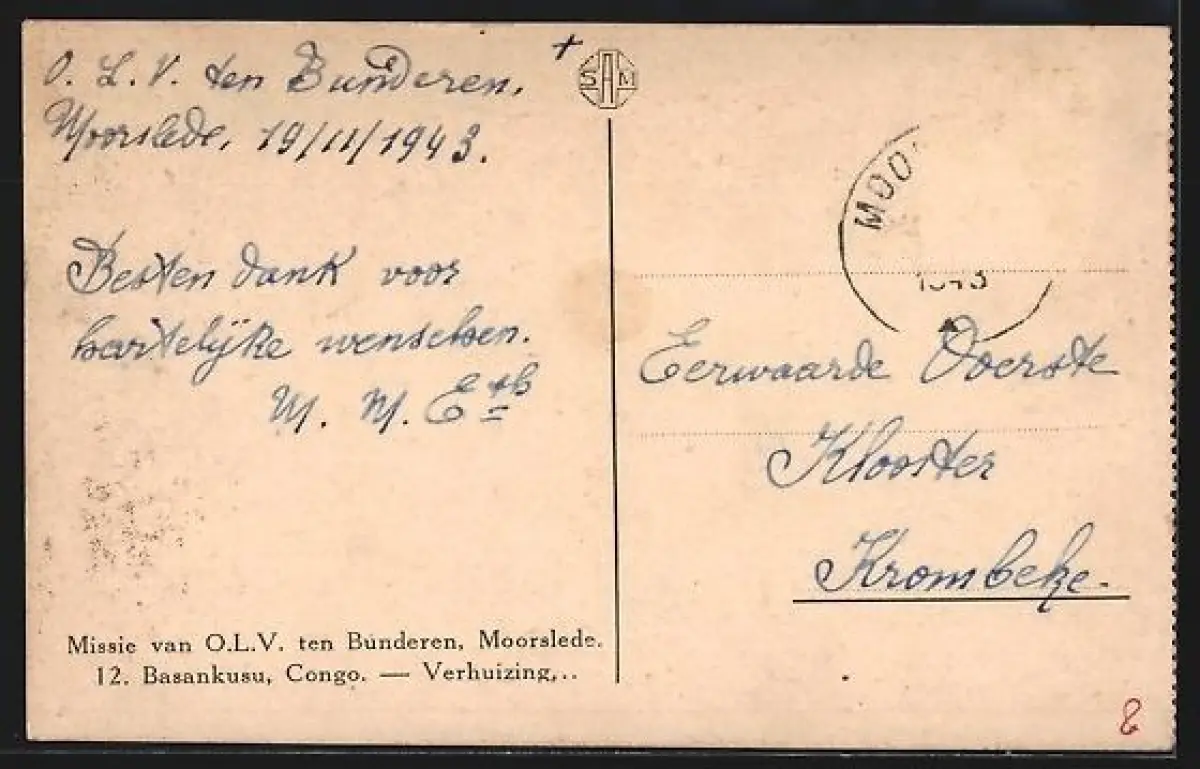 O. L. V. ten Bunderen.
Moorslede, 19/11/1943.
Besten dank voor
hartelijke wenschen.
M. M. Eth
Missie van O.L.V. ten Bunderen, Moorslede.
12. Basankusu, Congo. — Verhuizing...
SAM
MOO
1943
Eerwaarde Overste
Klooster
Krombeke.
8